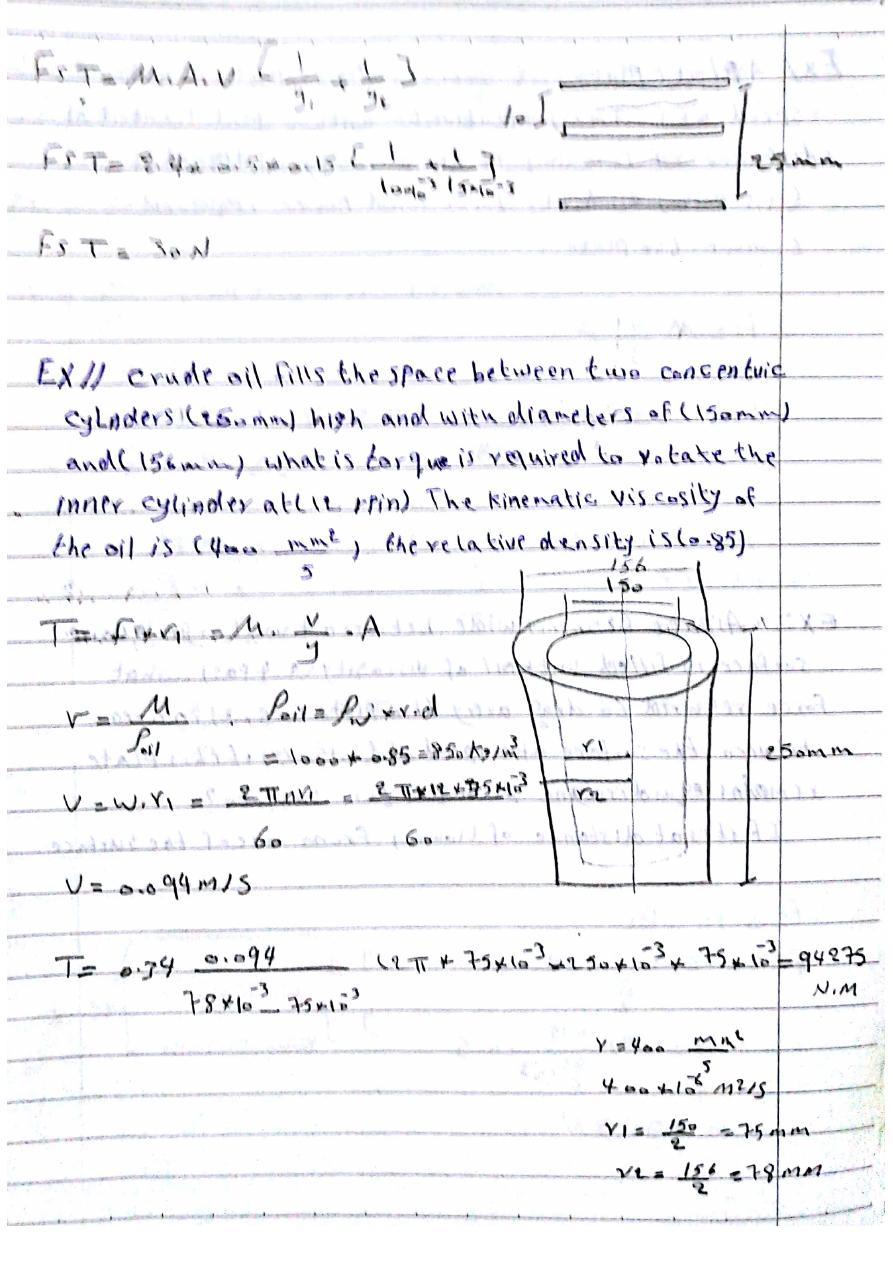 Fs T = M. A. V [ 1/y₁ + 1/y₂ ]
10
25 mm
Fs T = 2.4 * 0.5 * 0.15 [ 1/10*10⁻³ + 1/15*10⁻³ ]
Fs T = 30 N
EX// crude oil fills the space between two concentric
cylnders (250mm) high and with diameters of (150mm)
and (156mm) what is torque is required to rotate the
inner cylinder at (12 rpm) The kinematic viscosity of
the oil is (400 mm²/s, the relative density is (0.85)
156
150
T = F * r₁ = M. V/y . A
r = M/ρoil ρoil = ρw * r.d
= 1000 * 0.85 = 850 Kg/m³
r1
250mm
V = W. r₁ = 2πNr₁/60 = 2π*12*75*10⁻³/60
r2
V = 0.094 m/s
T = 0.34 0.094/78*10⁻³ - 75*10⁻³ (2π * 75*10⁻³ * 250*10⁻³ * 75*10⁻³ = 94275
N.M
r = 400 mm²/s
400 *10⁻⁶ m2/s
r1 = 150/2 = 75 mm
r2 = 156/2 = 78 mm